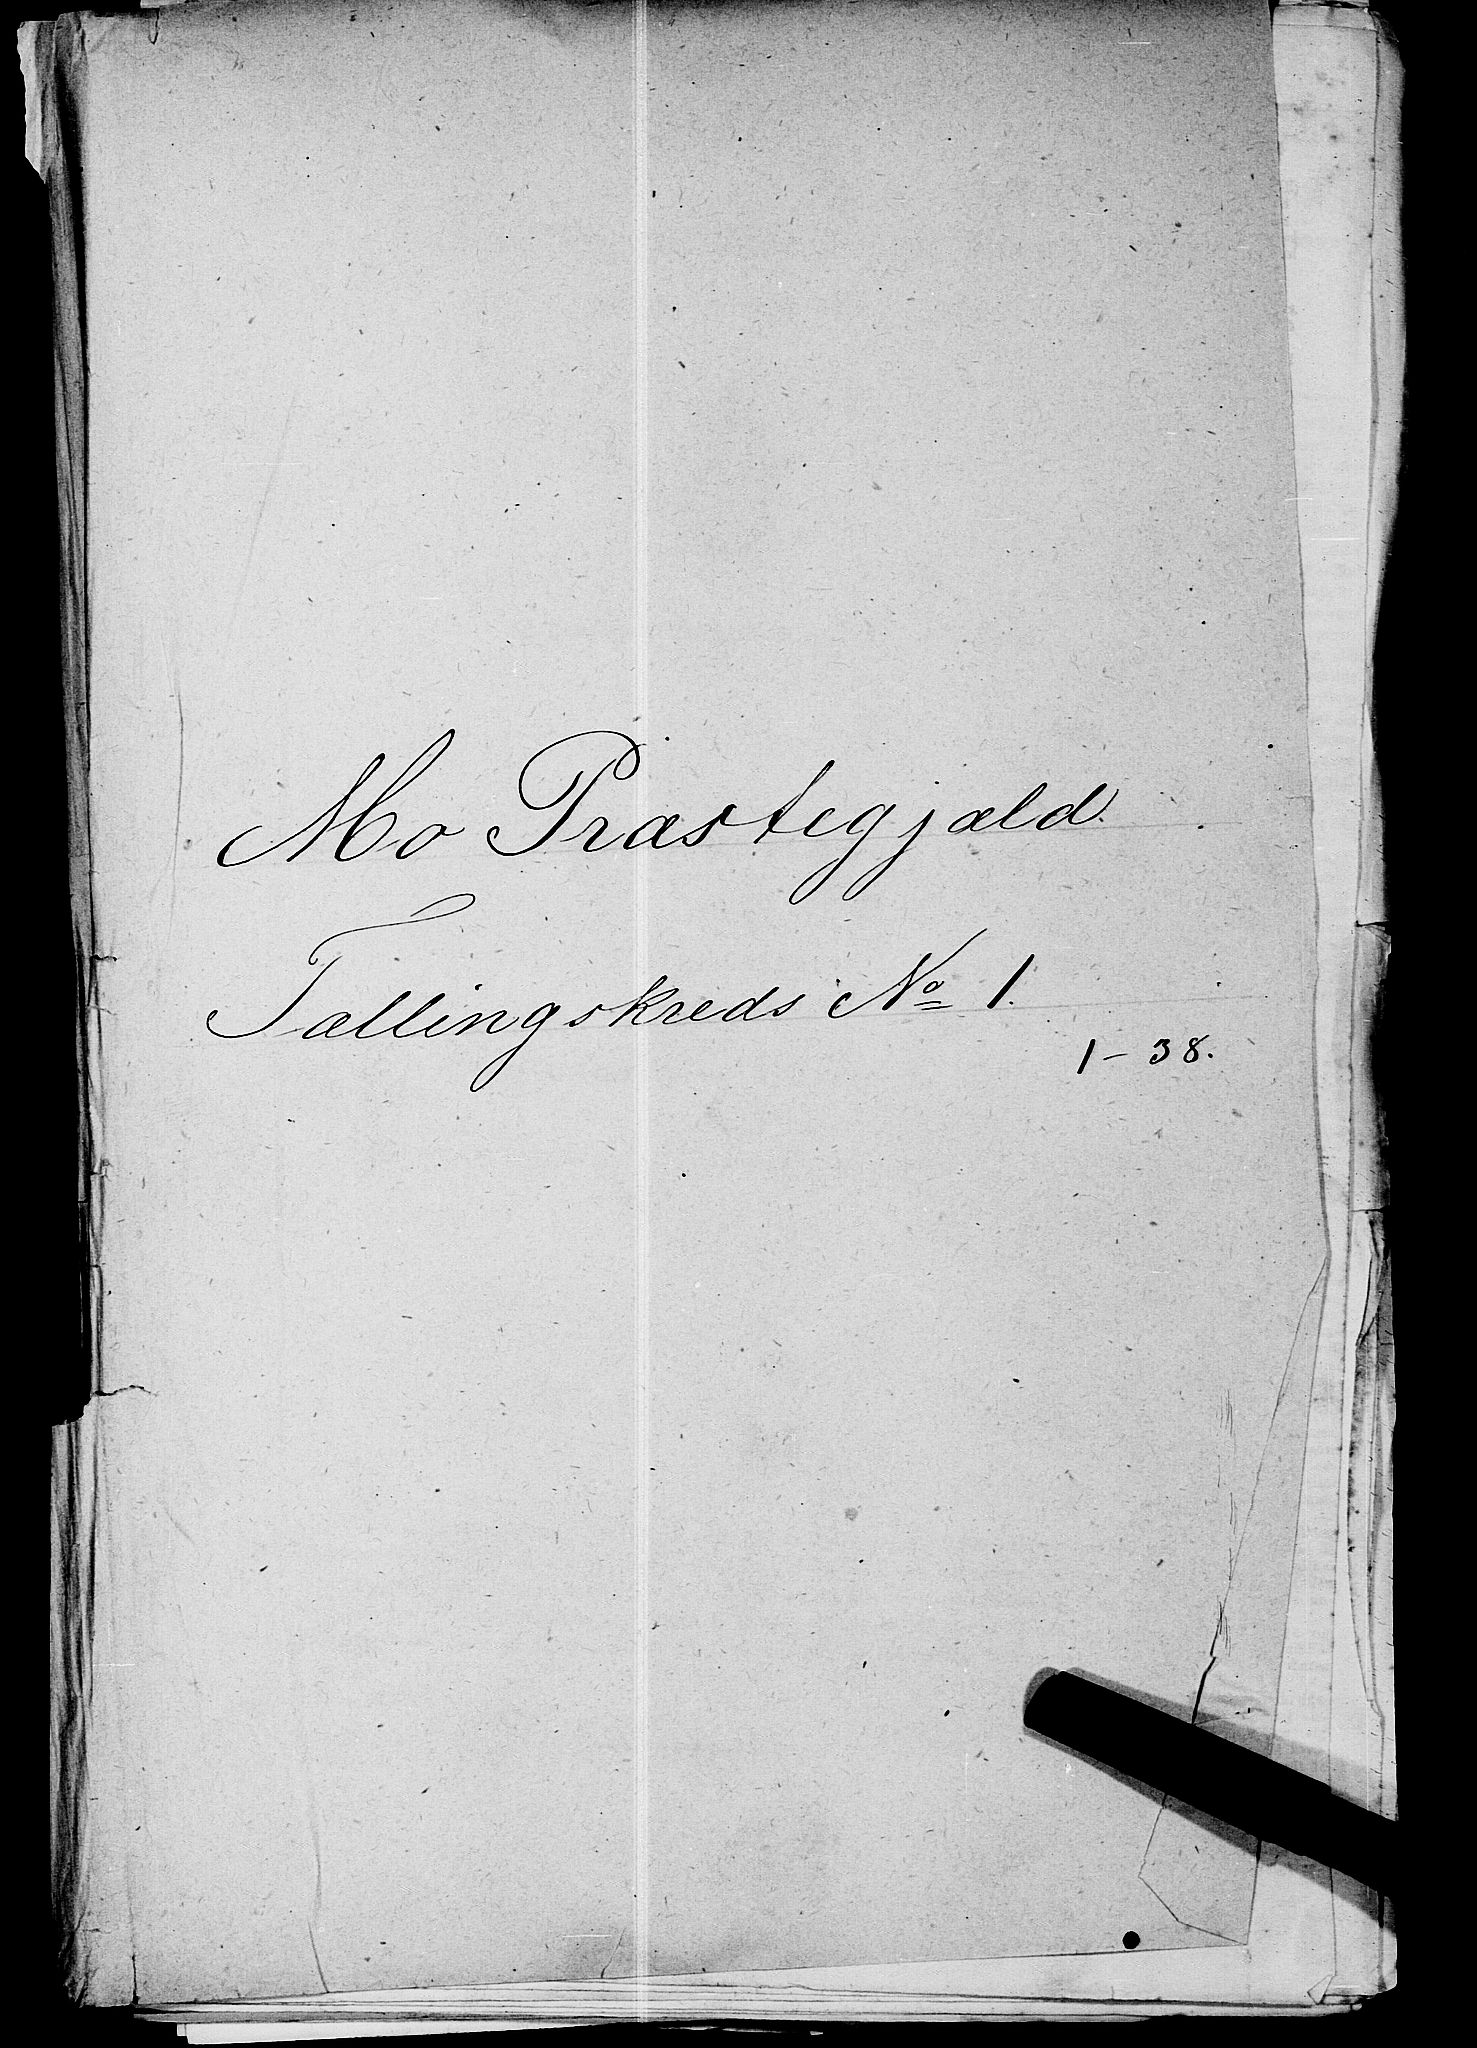 Mo Præstegjæld.
Tællingskreds No 1.
1 - 38.